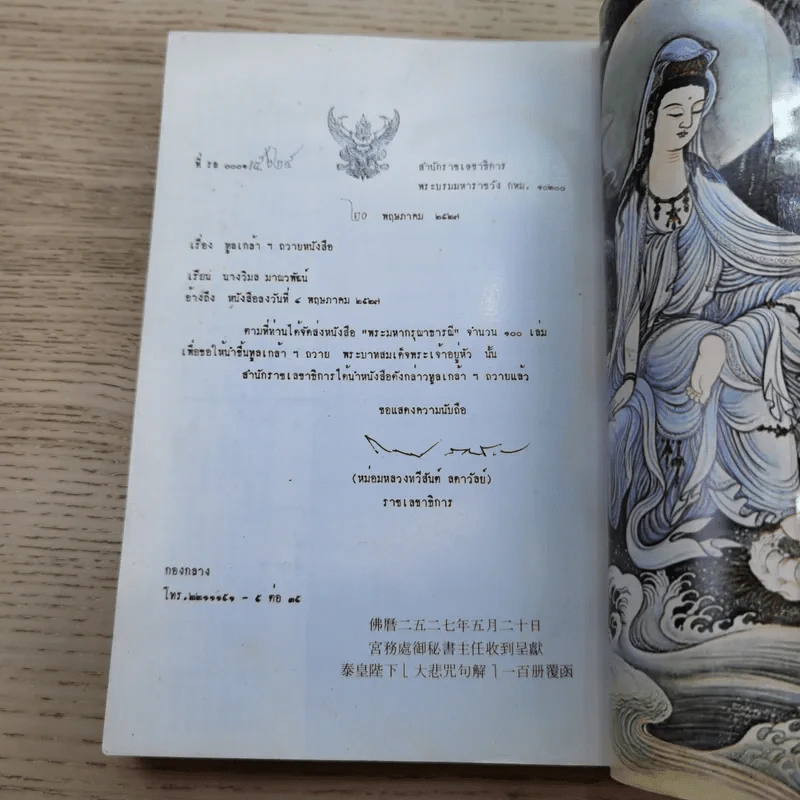 ที่ รล ๐๐๐๑/
สำนักราชเลขาธิการ
พระบรมมหาราชวัง กทม. ๑๐๒๐๐
๒๐ พฤษภาคม ๒๕๒๗
เรื่อง ทูลเกล้า ฯ ถวายหนังสือ
เรียน นางวิมล มาณวพัฒน์
อ้างถึง หนังสือลงวันที่ ๔ พฤษภาคม ๒๕๒๗
ตามที่ท่านได้จัดส่งหนังสือ "พระมหากรุณาธารณี" จำนวน ๑๐๐ เล่ม
เพื่อขอให้นำขึ้นทูลเกล้า ฯ ถวาย พระบาทสมเด็จพระเจ้าอยู่หัว นั้น
สำนักราชเลขาธิการได้นำหนังสือดังกล่าวทูลเกล้า ฯ ถวายแล้ว
ขอแสดงความนับถือ
(หม่อมหลวงทวีสันต์ ลดาวัลย์)
ราชเลขาธิการ
กองกลาง
โทร.๒๒๑๑๑๕๑ - ๕ ต่อ ๓๕
佛曆二五二七年五月二十日
宮務處御秘書主任收到呈獻
泰皇陛下﹝大悲咒句解﹞一百册覆函